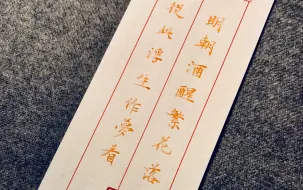 明朝酒醒繁花落
從此浮生作夢看